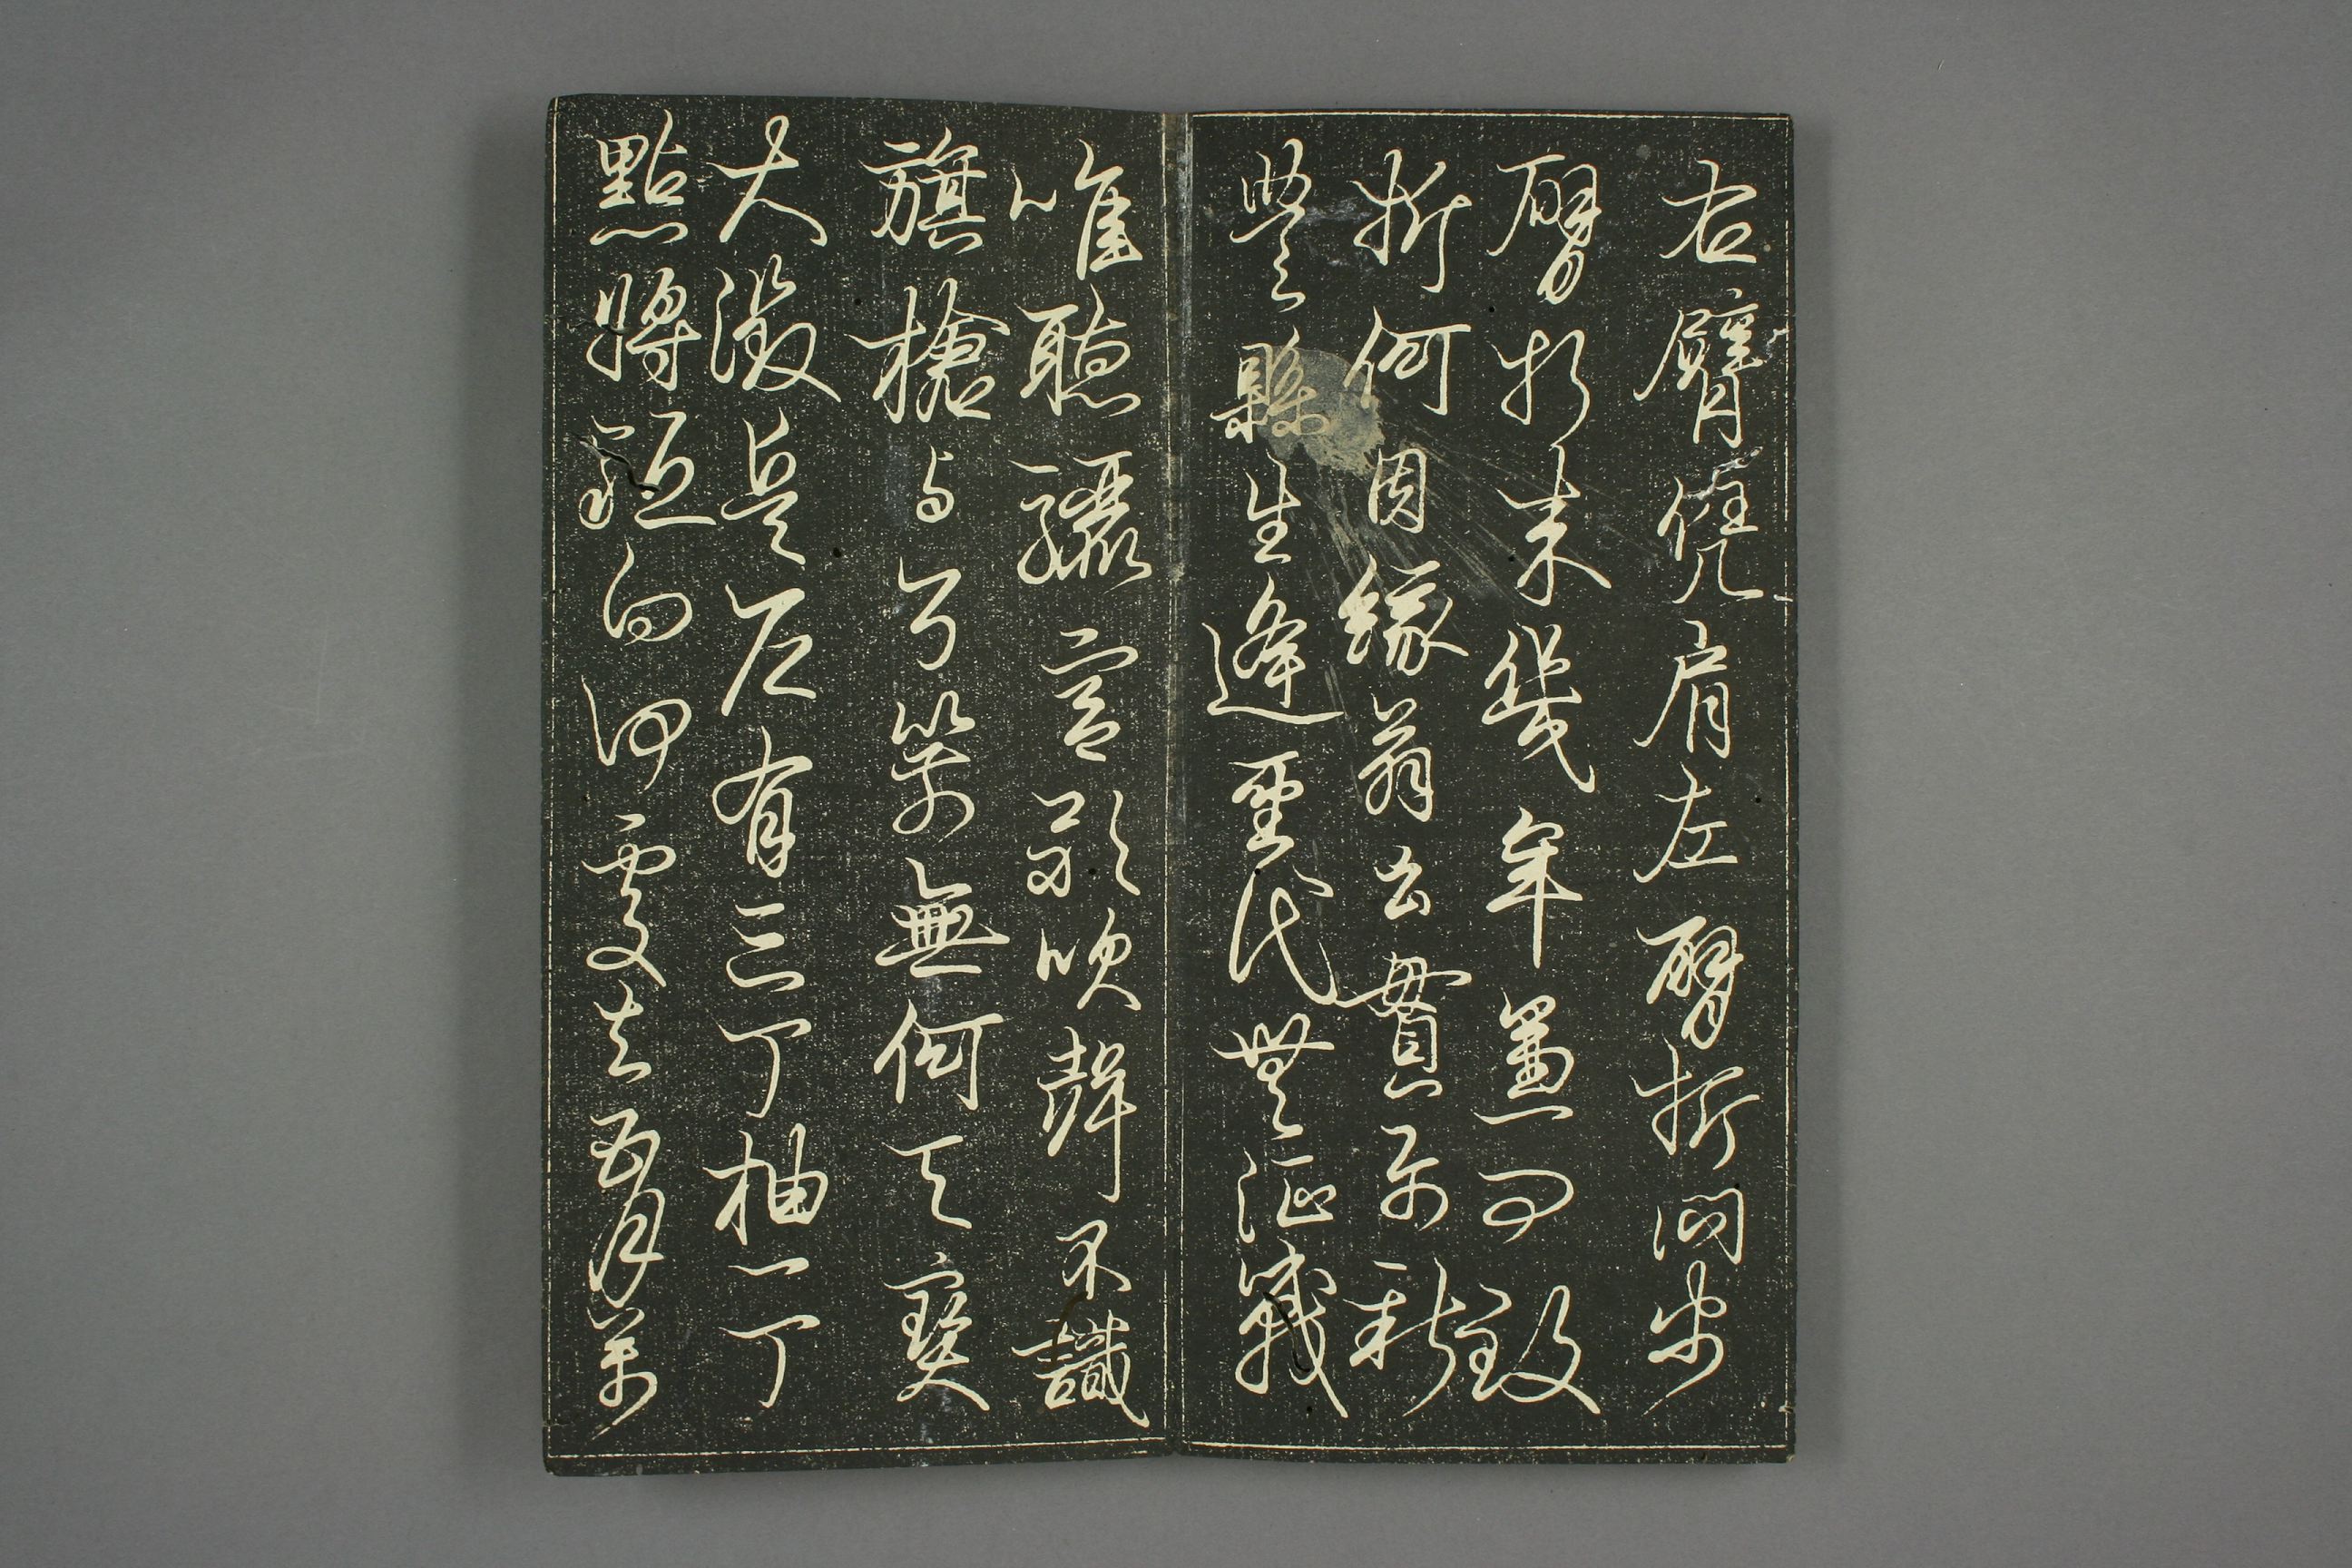 右臂凭肩左臂折問翁
臂折來幾年兼問致
折何因緣翁云貫屬新
豐縣生逢聖代無征戰
唯聽驪宮歌吹聲不識
旗槍與弓箭無何天寶
大徵兵戶有三丁抽一丁
點將駈向何處去五月萬